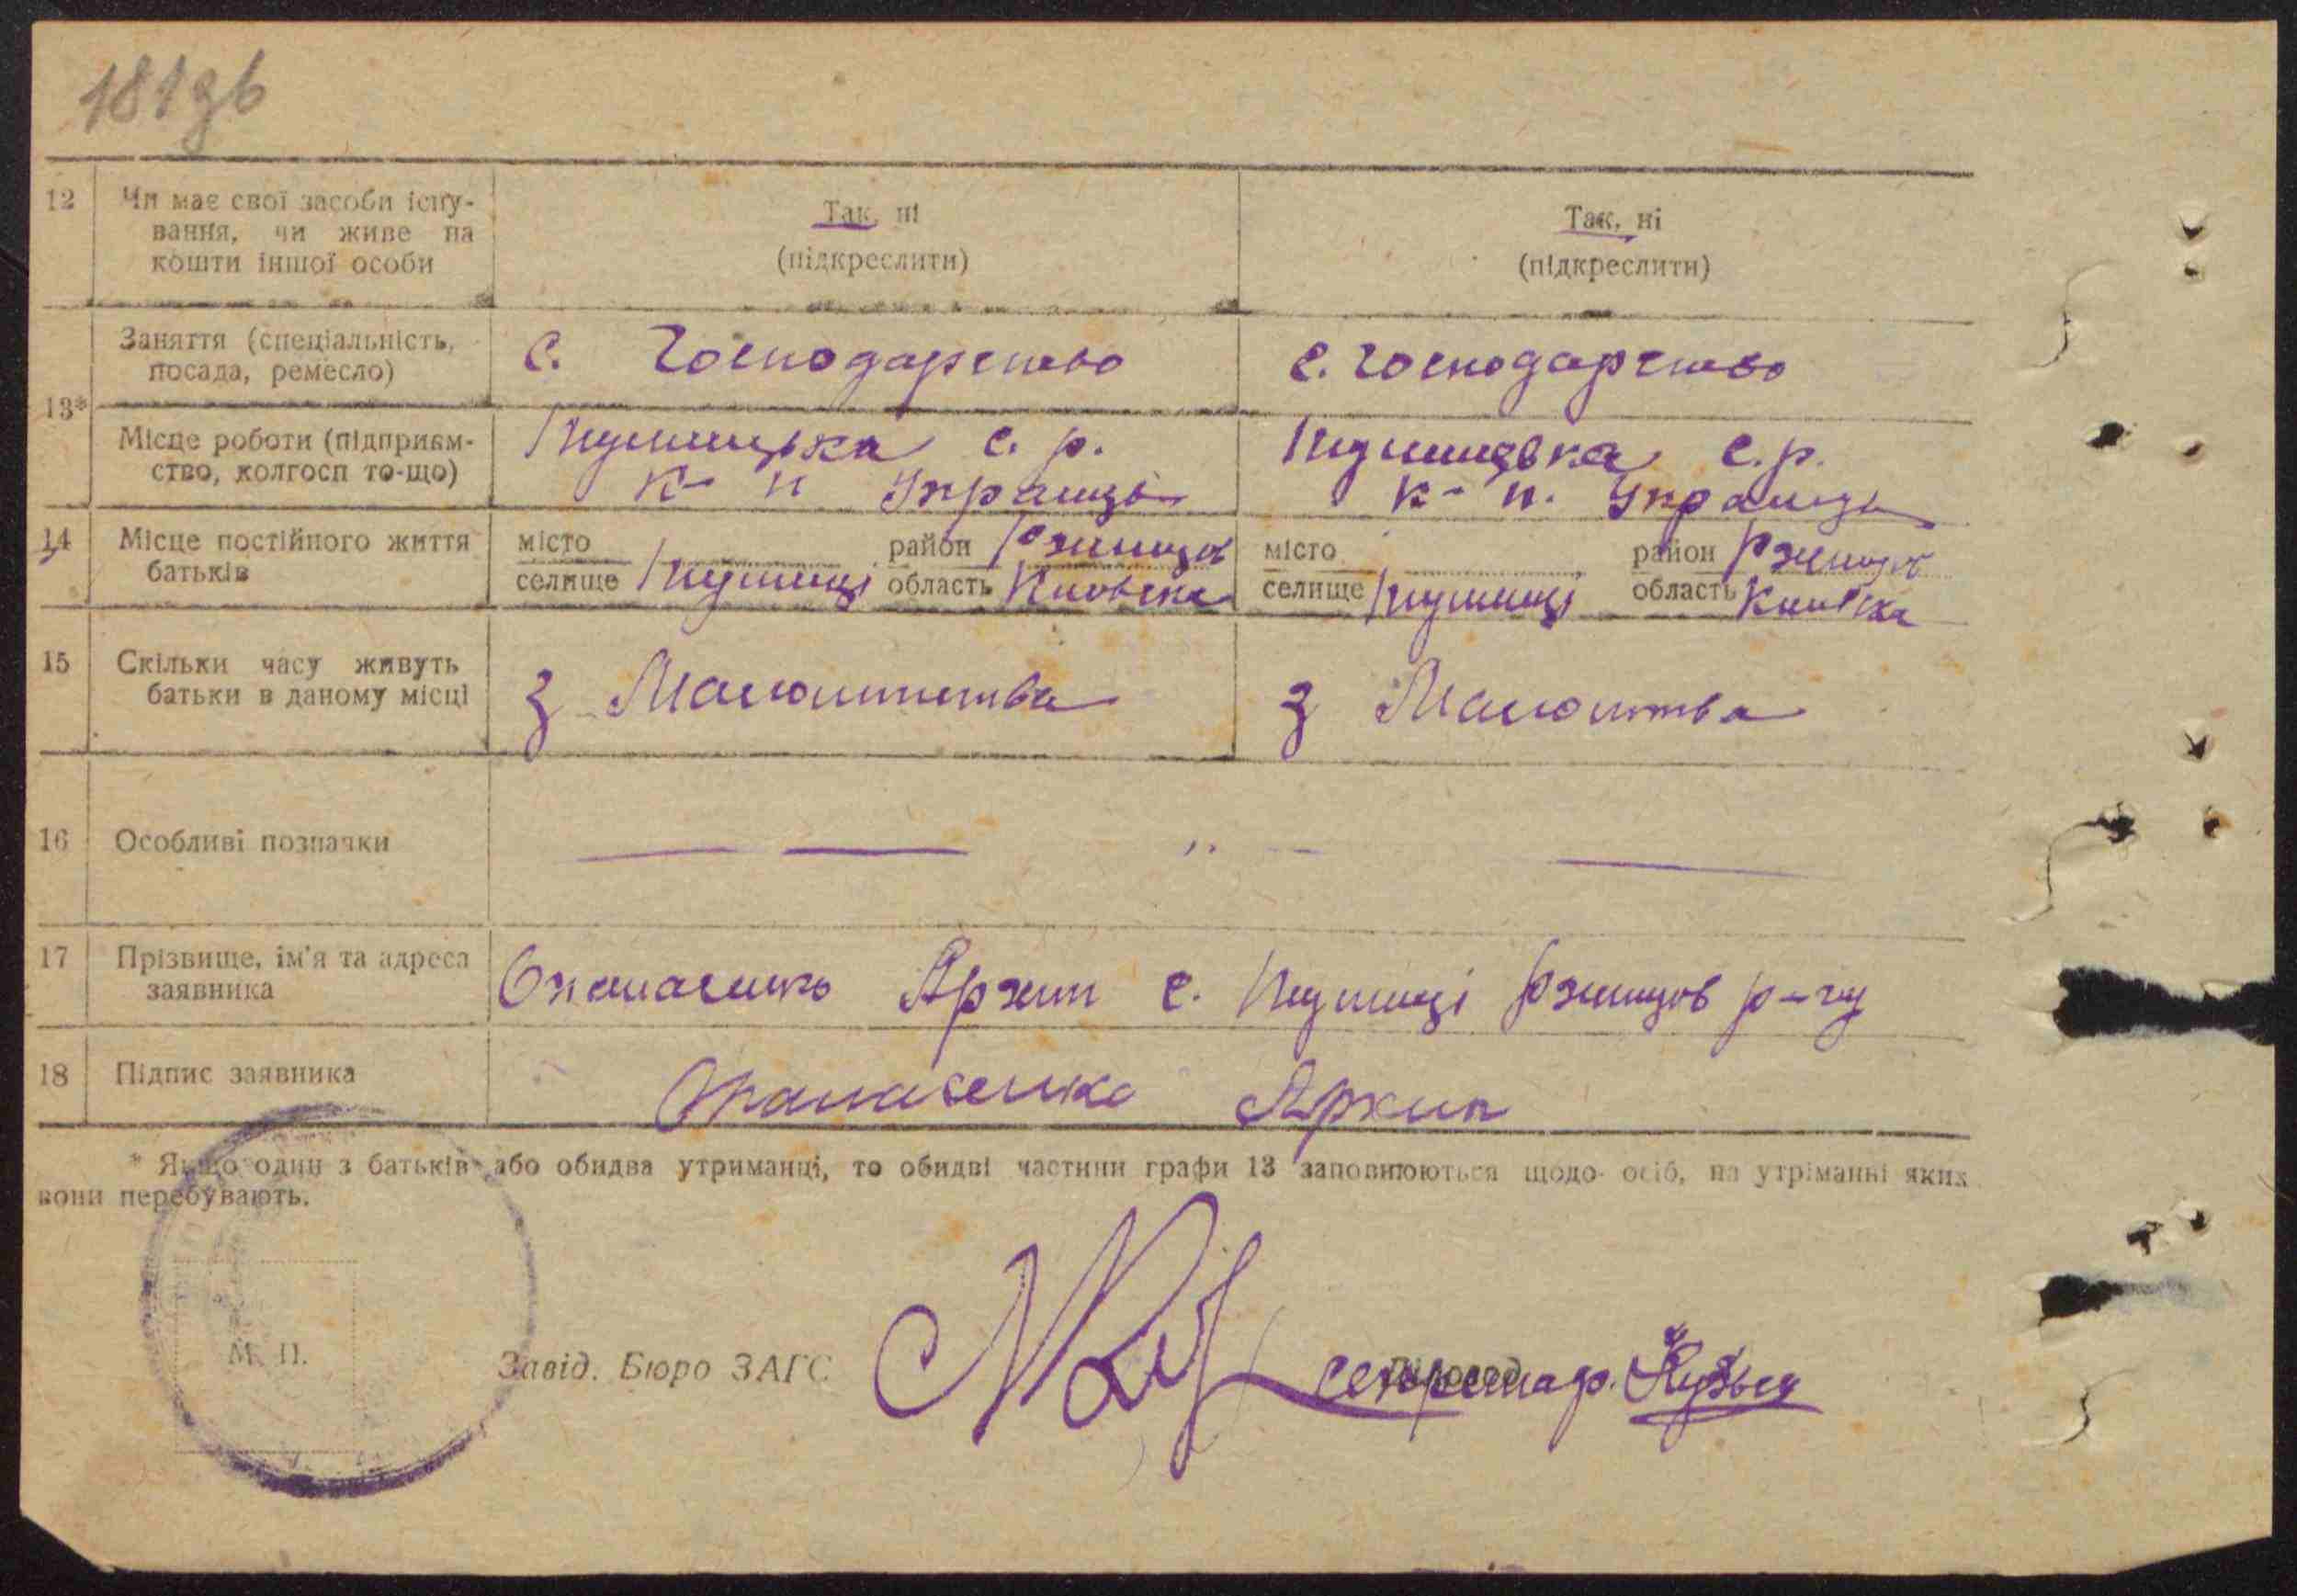 181зв
12 Чи має свої засоби існу-
вання, чи живе на
кошти іншої особи
Так, ні
(підкреслити)
Так, ні
(підкреслити)
13*
Заняття (спеціальність,
посада, ремесло)
с. господарство
с. господарство
Місце роботи (підприєм-
ство, колгосп то-що)
с. р.
к-п
с. р.
к-п.
14 Місце постійного життя
батьків
місто
селище
район
область Київська
місто
селище
район
область Київська
15 Скільки часу живуть
батьки в даному місці
З
З
16 Особливі позначки
17 Прізвище, ім'я та адреса
заявника
Опанасенко Архип с. р-ну
18 Підпис заявника
Опанасенко Архип
* Якщо один з батьків або обидва утриманці, то обидві частини графи 13 заповнюються щодо осіб, на утріманні яких
вони перебувають.
М. П.
Завід. Бюро ЗАГС
секретар.